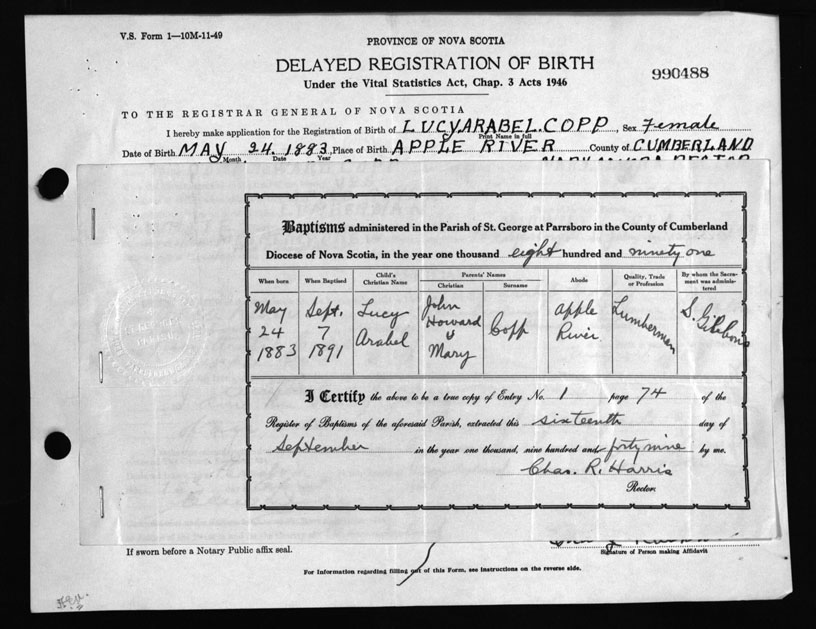 V.S. Form 1—10M-11-49
PROVINCE OF NOVA SCOTIA
DELAYED REGISTRATION OF BIRTH
990488
Under the Vital Statistics Act, Chap. 3 Acts 1946
TO THE REGISTRAR GENERAL OF NOVA SCOTIA
I hereby make application for the Registration of Birth of LUCY.ARABEL.COPP, Sex Female
Print Name in full
Date of Birth MAY 24. 1883, Place of Birth APPLE RIVER County of CUMBERLAND
Month Date Year
Baptisms administered in the Parish of St. George at Parrsboro in the County of Cumberland
Diocese of Nova Scotia, in the year one thousand eight hundred and ninety one
When born When Baptised Child's Christian Name Parents' Names Christian Surname Abode Quality, Trade or Profession By whom the Sacrament was administered
May Sept. Lucy John Apple Lumberman S. Gibbons
24 7 Arabel Howard Copp River
1883 1891 & Mary
I Certify the above to be a true copy of Entry No. 1 page 74 of the
Register of Baptisms of the aforesaid Parish, extracted this sixteenth day of
September in the year one thousand, nine hundred and forty nine by me.
Chas. R. Harris
Rector.
If sworn before a Notary Public affix seal.
Signature of Person making Affidavit
For Information regarding filling out of this Form, see Instructions on the reverse side.